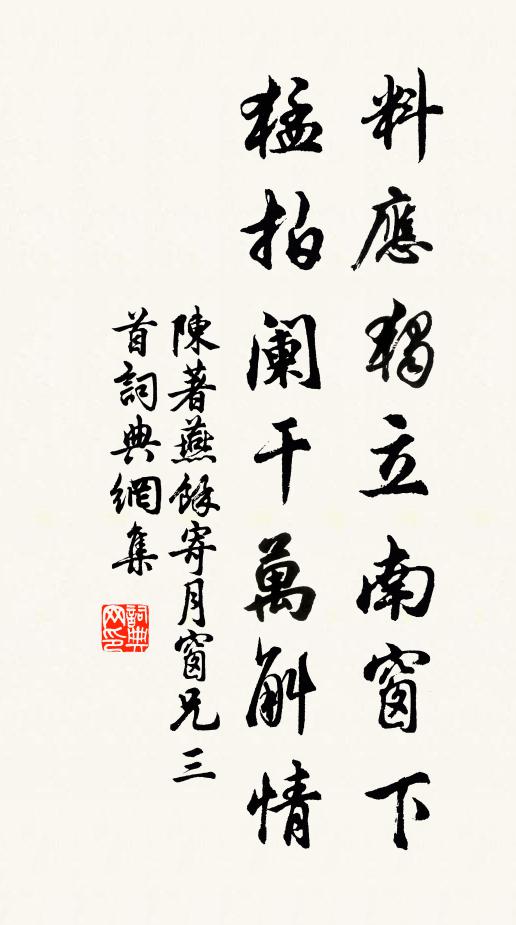 料應獨立南窗下
猛拍阑干萬斛情
陳著燕餘寄月窗兄三
首詞典網集
詞典
网印